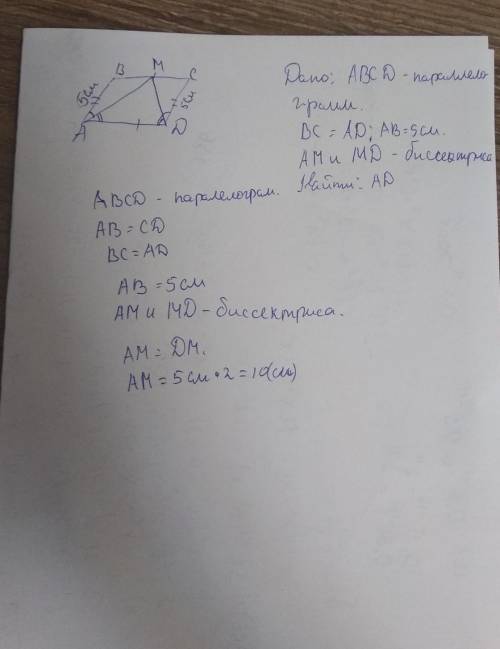 B M C
5см 5см
A D
Дано: ABCD - параллело
грамм.
BC = AD; AB=5см.
AM и MD - биссектриса
Найти: AD
ABCD - паралелограм.
AB = CD
BC = AD
AB = 5см
AM и MD - биссектриса.
AM = DM.
AM = 5см • 2 = 10(см)